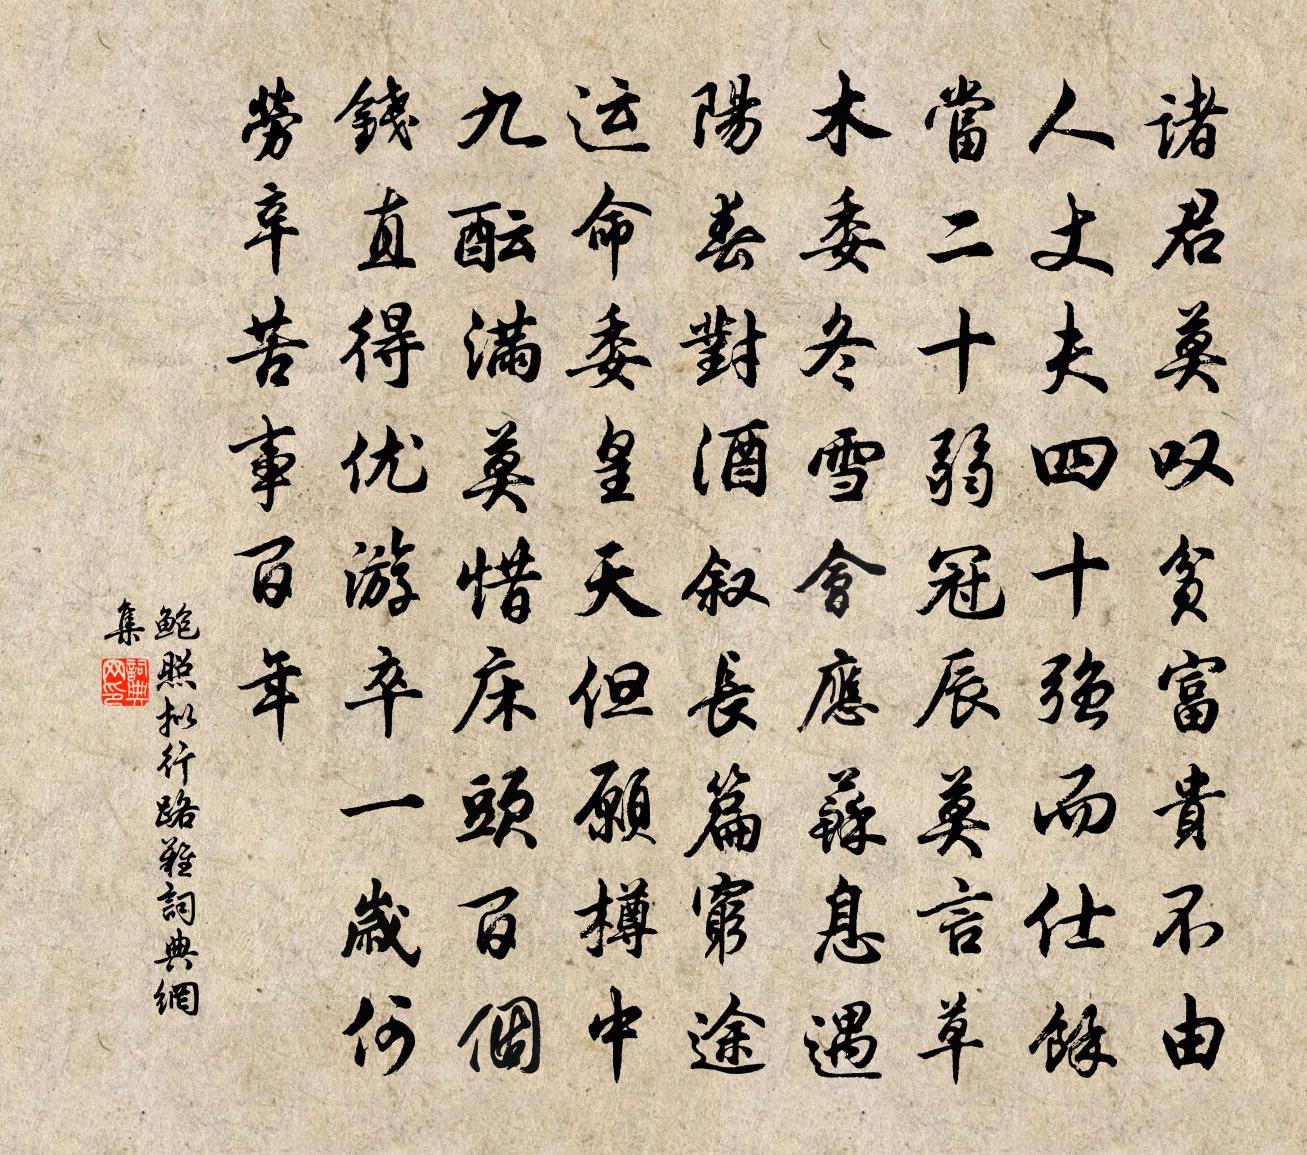 诸君莫叹贫富貴不由
人丈夫四十强而仕餘
當二十弱冠辰莫言草
木委冬雪會應蘇息遇
陽春對酒叙長篇窮途
运命委皇天但願樽中
九酝滿莫惜床頭百個
錢直得优游卒一歲何
勞辛苦事百年
鲍照拟行路難詞典網
集
詞典
网印